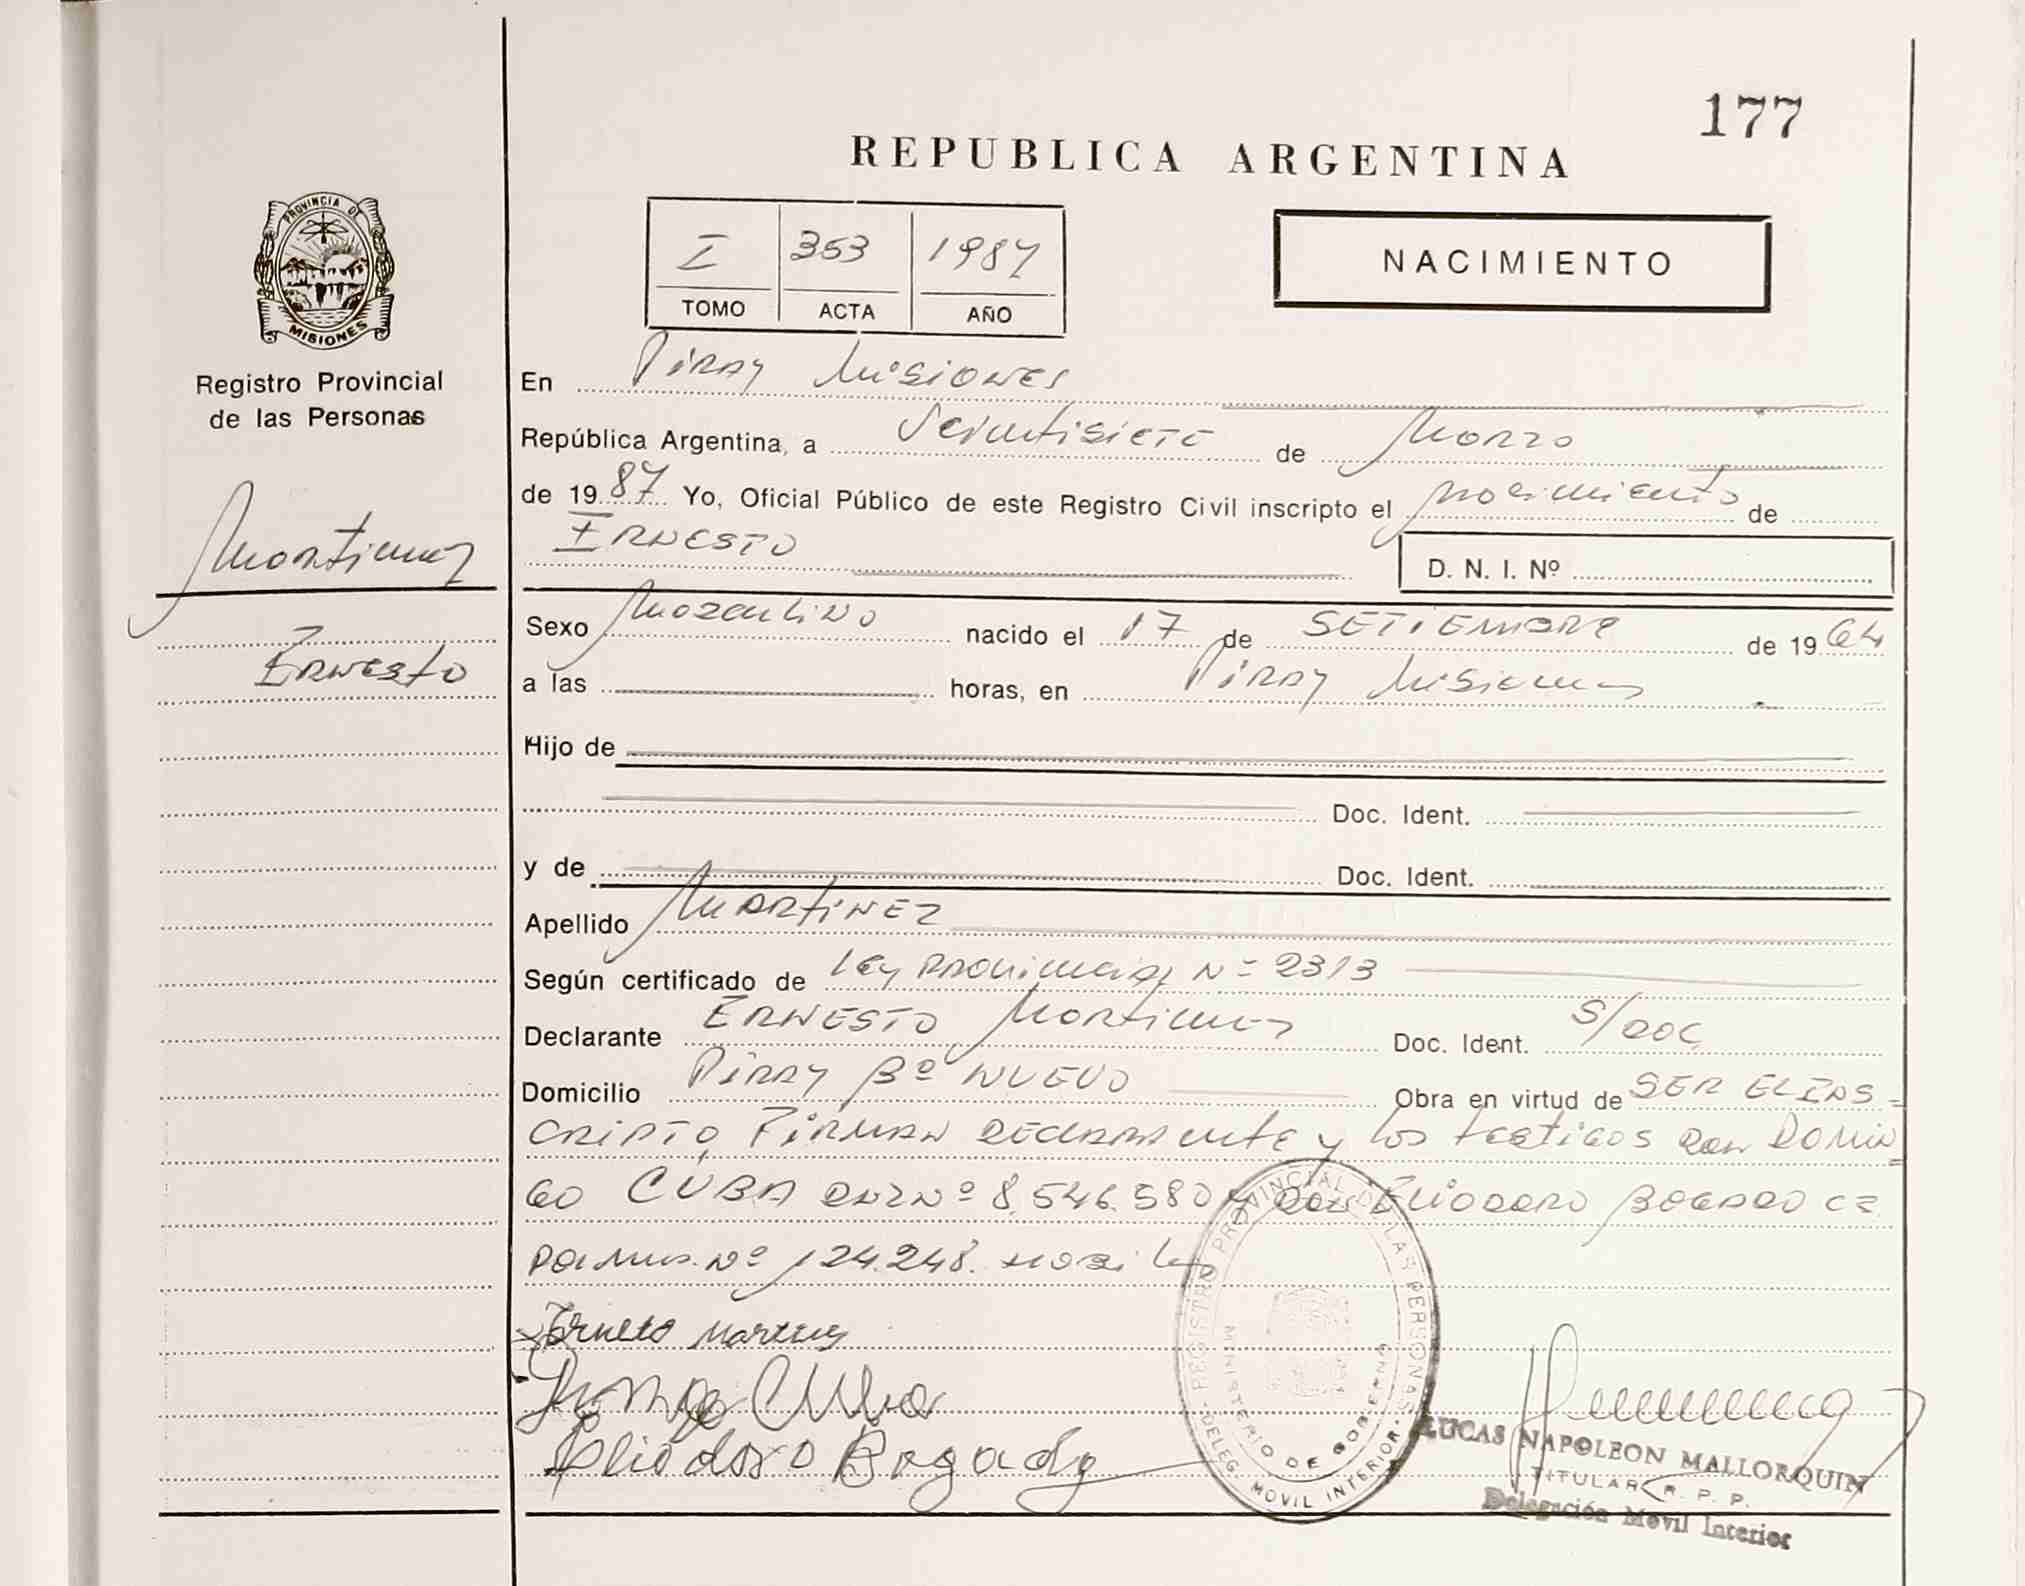 177
REPUBLICA ARGENTINA
PROVINCIA DE
MISIONES
Registro Provincial
de las Personas
I 353 1987
TOMO ACTA AÑO
NACIMIENTO
En Piray Misiones
República Argentina, a Veintisiete de Marzo
de 1987 Yo, Oficial Público de este Registro Civil inscripto el nacimiento de
Ernesto
D. N. I. Nº
Martinez
Ernesto
Sexo Masculino nacido el 17 de SETIEMBRE de 1964
a las horas, en Piray Misiones
Hijo de
Doc. Ident.
y de Doc. Ident.
Apellido Martinez
Según certificado de Ley Provincial Nº 2313
Declarante Ernesto Martinez Doc. Ident. S/DOC
Domicilio Piray Bº NUEVO Obra en virtud de SER EL INS-
CRIPTO, Firman declarante y los testigos don Domin
go CUBA DNI Nº 8.546.580 y don Eliodoro Bogado CI
Pol. Mis. Nº 124.248.
Ernesto Martinez
Domingo Cuba
Eliodoro Bogado
REGISTRO PROVINCIAL DE LAS PERSONAS
MINISTERIO DE GOBIERNO
DELEG. MOVIL INTERIOR
LUCAS NAPOLEON MALLORQUIN
TITULAR R. P. P.
Delegación Movil Interior